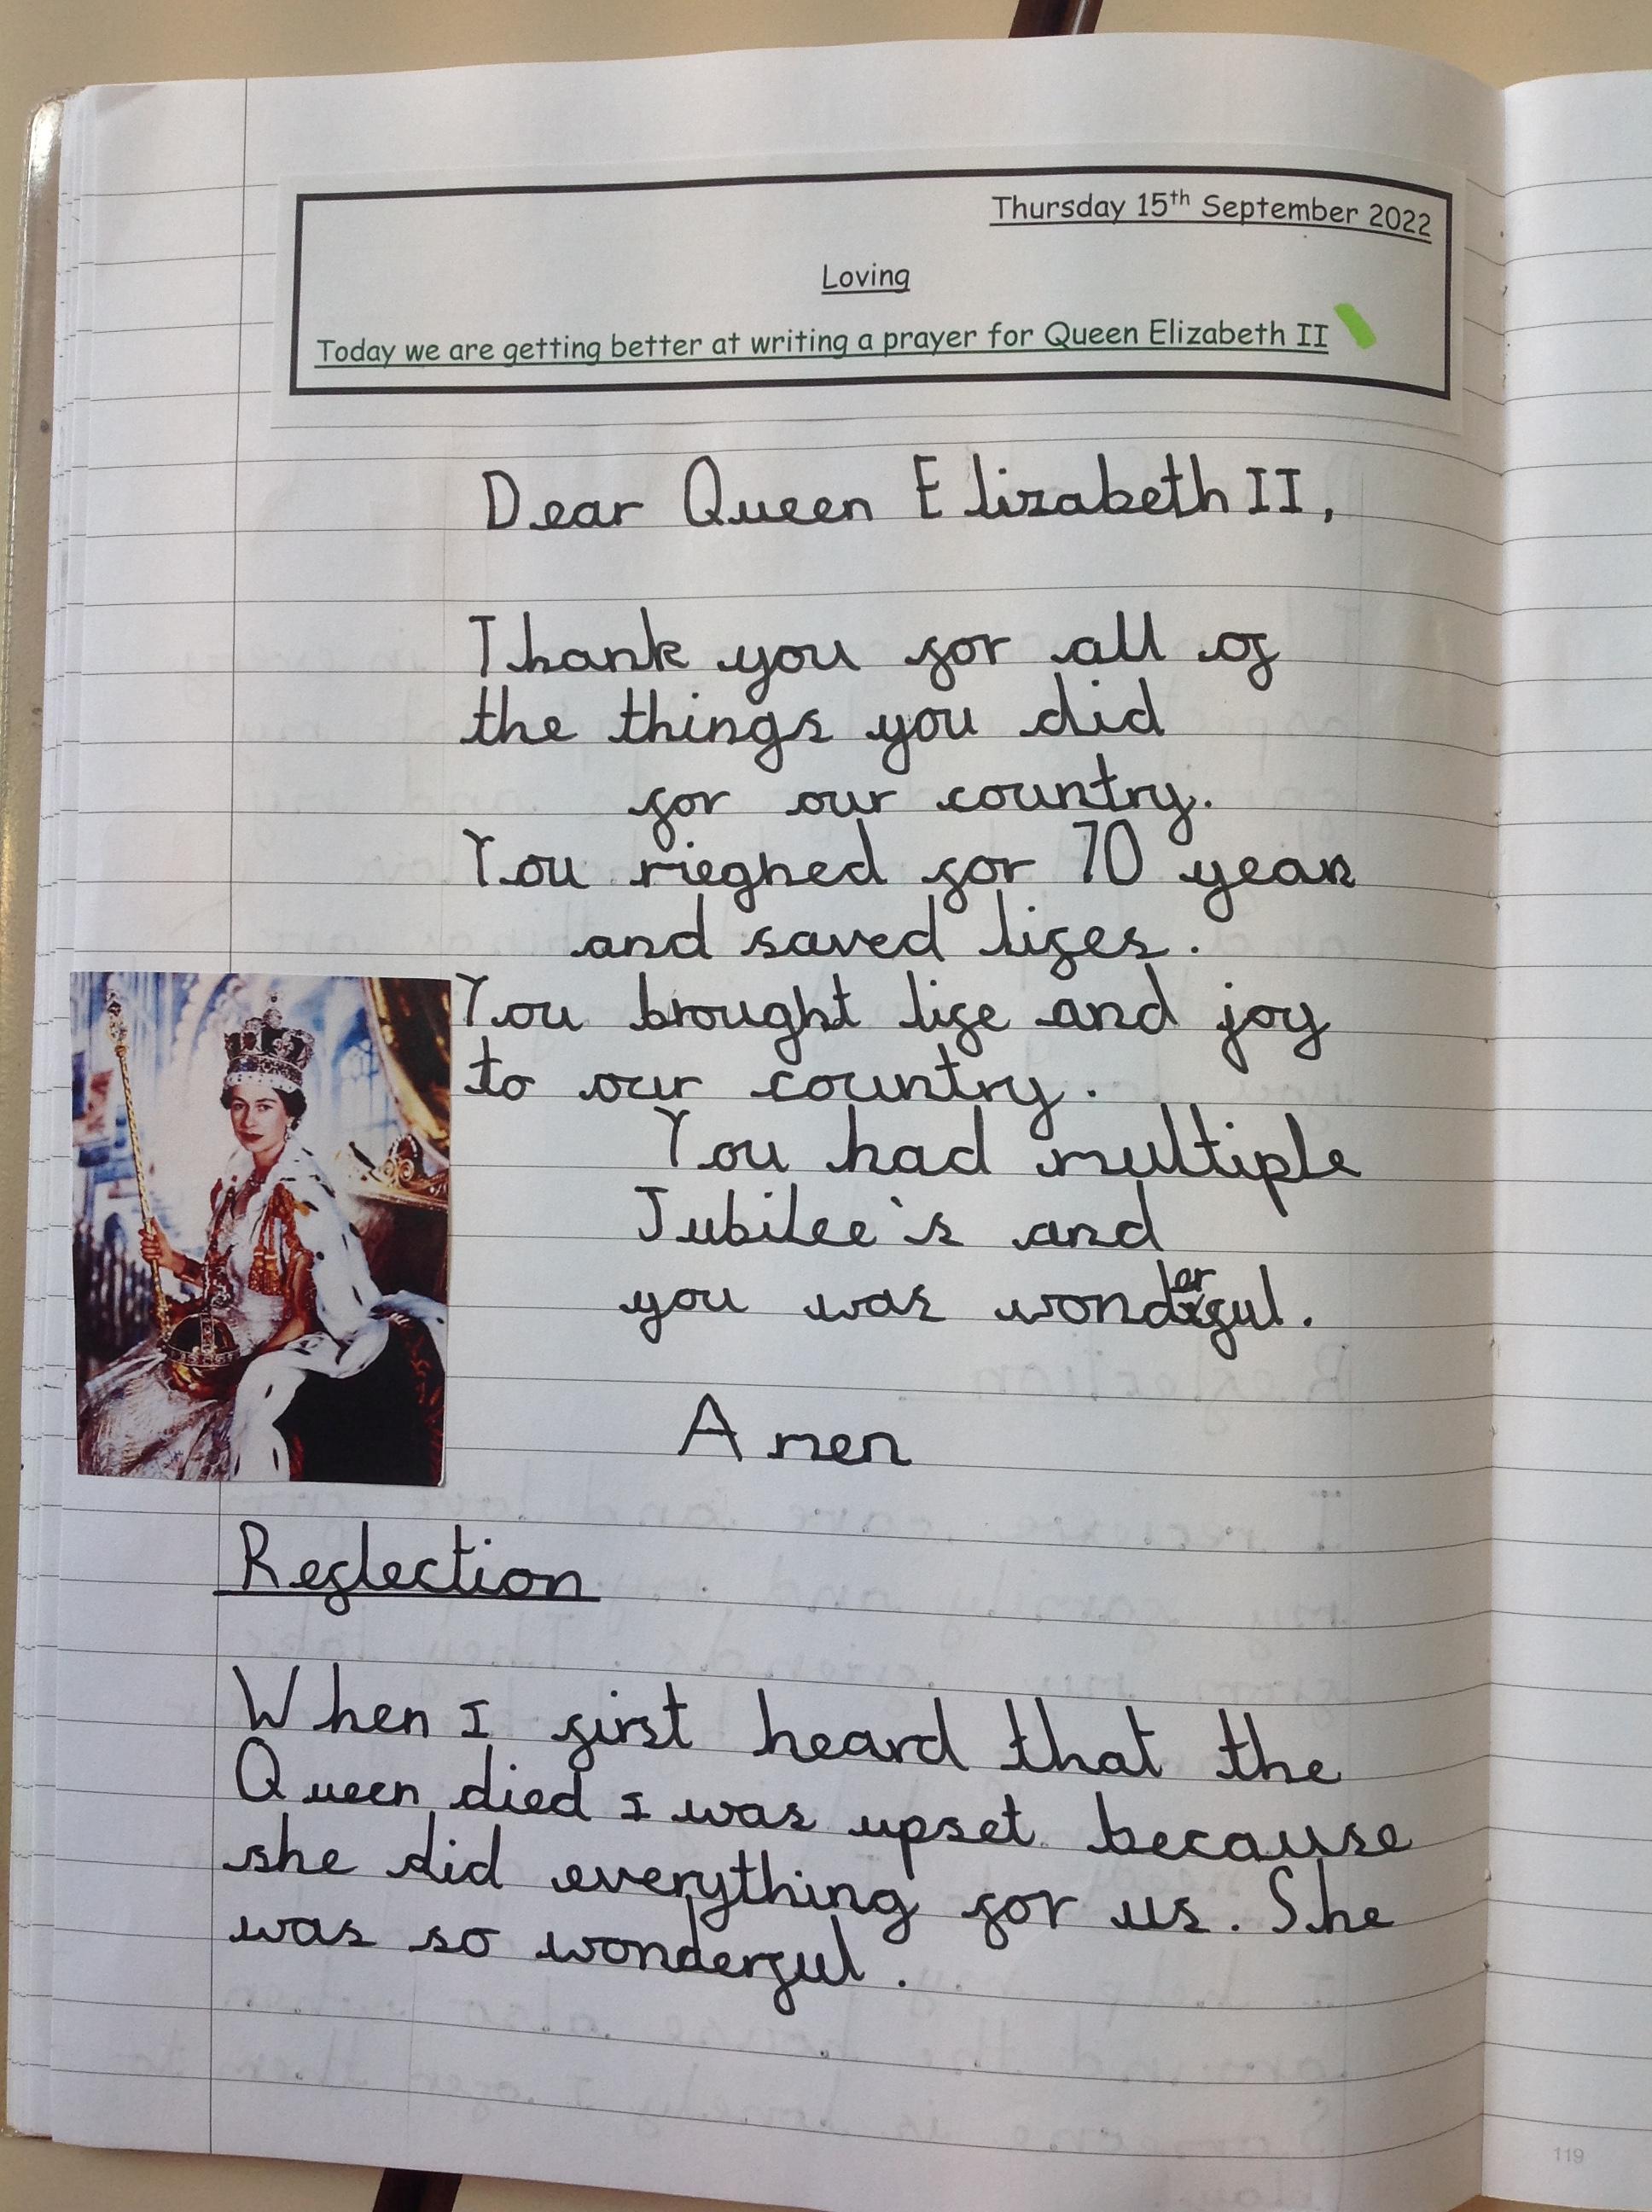 Thursday 15th September 2022
Loving
Today we are getting better at writing a prayer for Queen Elizabeth II
Dear Queen Elizabeth II,
Thank you for all of
the things you did
for our country.
You rieghed for 70 years
and saved lifes.
You brought life and joy
to our country.
You had multiple
Jubilee's and
you was wonderful.
Amen
Reflection
When I first heard that the
Queen died I was upset because
she did everything for us. She
was so wonderful.
119